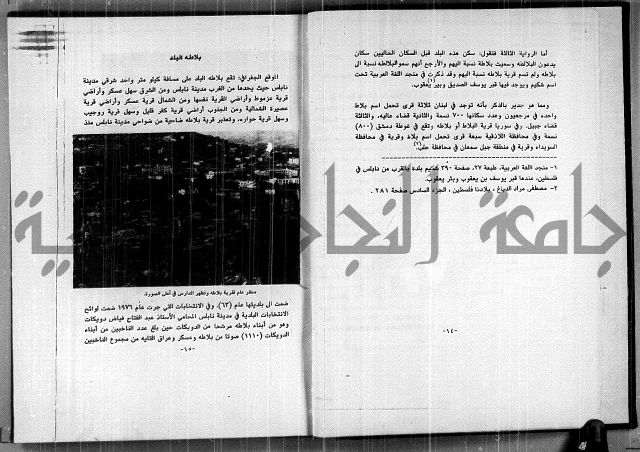 أما الرواية الثالثة فتقول: سكن هذه البلد قبل السكان الحاليين سكان
يدعون البلالطه وسميت بلاطة نسبة اليهم والأرجح أنهم سموالبلالطه نسبة الى
بلاطه ولم تسم قرية بلاطه نسبة اليهم وقد ذكرت في منجد اللغة العربية تحت
اسم شكيم ويوجد فيها قبر يوسف الصديق وبير يعقوب.(١)
ومما هو جدير بالذكر بأنه توجد في لبنان ثلاثة قرى تحمل اسم بلاط
واحده في مرجعيون وعدد سكانها ٧٠٠ نسمة والثانية قضاء عاليه، والثالثة
قضاء جبيل. وفي سوريا قرية البلاط أو بلاطه وتقع في غوطة دمشق (٨٠٠)
نسمة وفي محافظة اللاذقية سبعة قرى تحمل اسم بلاط وقرية في محافظة
السويداء وقرية في منطقة جبل سمعان في محافظة حلب.(٢)
١- منجد اللغة العربية، طبعة ٢٧، صفحة ٣٩٠ شكيم بلدة بالقرب من نابلس في
فلسطين، عندها قبر يوسف بن يعقوب وبئر يعقوب.
٢- مصطفى مراد الدباغ، بلادنا فلسطين، الجزء السادس صفحة ٢٨١ .
-١٤-
بلاطه البلد
الموقع الجغرافي: تقع بلاطه البلد على مسافة كيلو متر واحد شرقي مدينة
نابلس حيث يحدها من الغرب مدينة نابلس ومن الشرق سهل عسكر وأراضي
قرية عزموط وأراضي القرية نفسها ومن الشمال قرية عسكر وأراضي قرية
عصيرة الشمالية ومن الجنوب أراضي قرية كفر قليل وسهل قرية روجيب
وسهل قرية حواره، وتعتبر قرية بلاطه ضاحية من ضواحي مدينة نابلس منذ
منظر عام لقرية بلاطه وتظهر المدارس في أعلى الصورة.
ضمت الى بلديتها عام (٦٣). وفي الانتخابات التي جرت عام ١٩٧٦ ضمت لوائح
الانتخابات البلدية في مدينة نابلس المحامي الأستاذ عبد الفتاح فياض دويكات
وهو من أبناء بلاطه مرشحا من الدويكات حين بلغ عدد الناخبين من أبناء
الدويكات (١١١٠) صوتا من بلاطه وعسكر وعراق التايه من مجموع الناخبين
-١٥-
جامعة النجاح